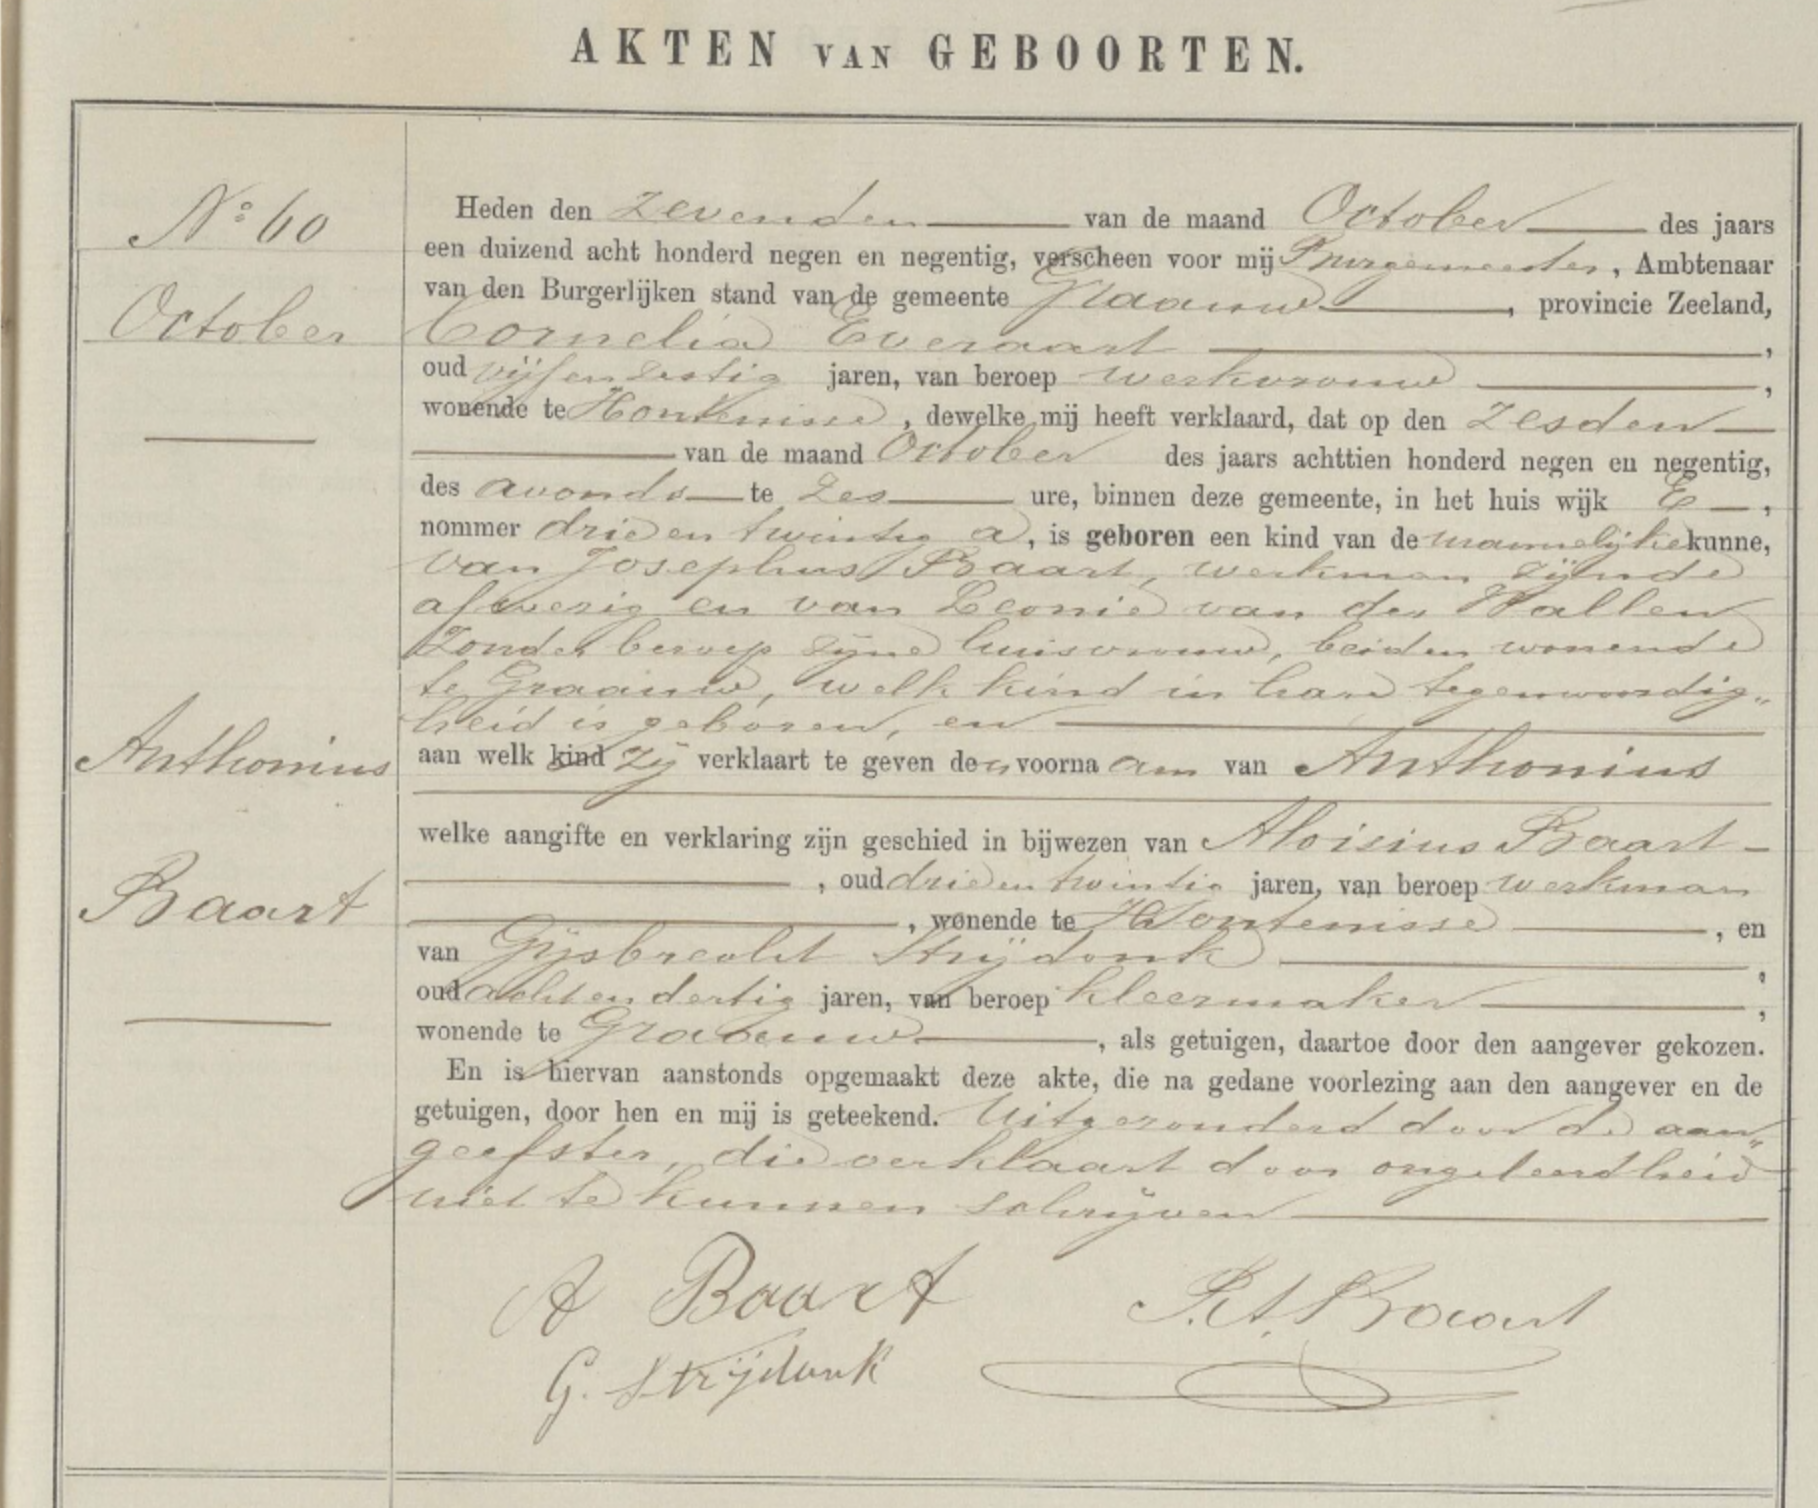 AKTEN VAN GEBOORTEN.
No 60
October
Anthonius
Baart
Heden den zevenden van de maand October des jaars
een duizend acht honderd negen en negentig, verscheen voor mij Burgemeester, Ambtenaar
van den Burgerlijken stand van de gemeente Graauw, provincie Zeeland,
Cornelia Everaart,
oud vijfenzestig jaren, van beroep werkvrouw,
wonende te Hontenisse, dewelke mij heeft verklaard, dat op den zesden
van de maand October des jaars achttien honderd negen en negentig,
des avonds te zes ure, binnen deze gemeente, in het huis wijk E,
nommer drie en twintig a, is geboren een kind van de mannelijke kunne,
van Josephus Baart, werkman zijnde
afwezig en van Leonie van der Wallen
zonder beroep zijne huisvrouw, beiden wonende
te Graauw, welk kind in hare tegenwoordig„
heid is geboren, en
aan welk kind zij verklaart te geven den voornaam van Anthonius
welke aangifte en verklaring zijn geschied in bijwezen van Aloisius Baart
, oud drie en twintig jaren, van beroep werkman
, wonende te Hontenisse, en
van Gijsbrecht Strijdonk,
oud acht en dertig jaren, van beroep kleermaker,
wonende te Graauw, als getuigen, daartoe door den aangever gekozen.
En is hiervan aanstonds opgemaakt deze akte, die na gedane voorlezing aan den aangever en de
getuigen, door hen en mij is geteekend. Uitgezonderd door de aan„
geefster, die verklaart door ongeleerdheid
niet te kunnen schrijven
A Baart
G. Strijdonk